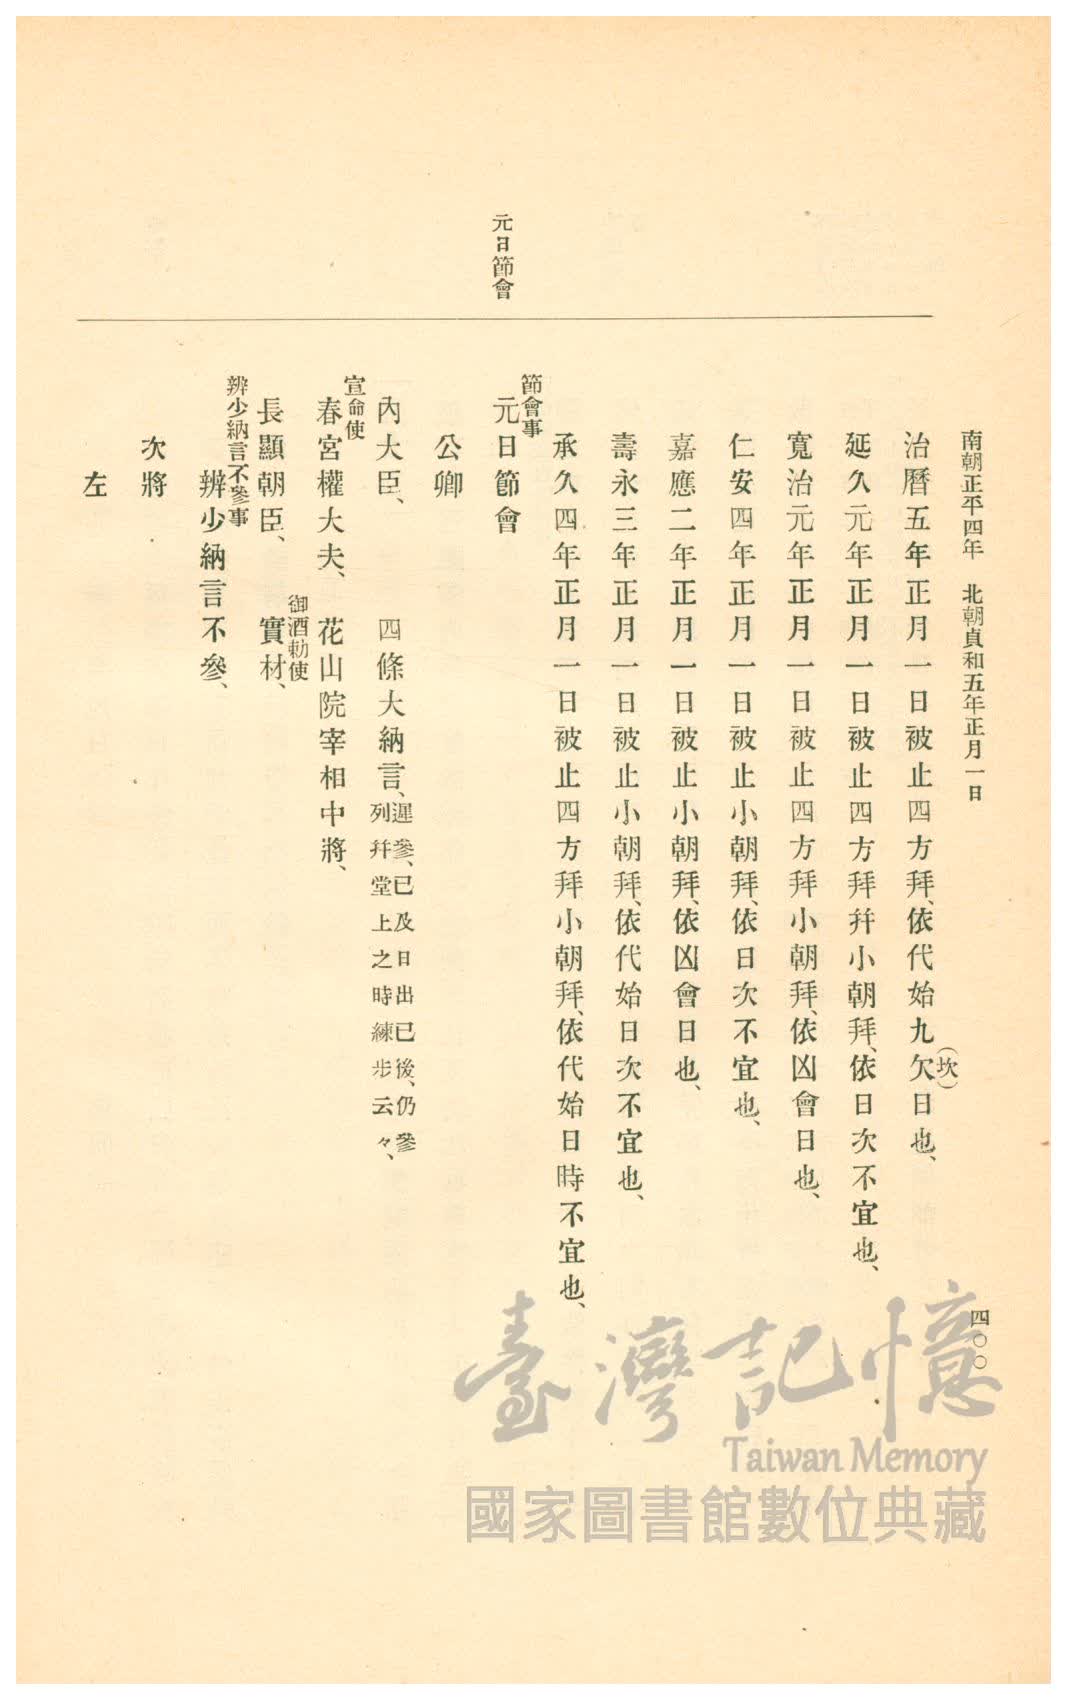 南朝正平四年　北朝貞和五年正月一日
四〇〇
元日節會
治曆五年正月一日被止四方拜、依代始九欠(坎)日也、
延久元年正月一日被止四方拜幷小朝拜、依日次不宜也、
寬治元年正月一日被止四方拜小朝拜、依凶會日也、
仁安四年正月一日被止小朝拜、依日次不宜也、
嘉應二年正月一日被止小朝拜、依凶會日也、
壽永三年正月一日被止小朝拜、依代始日次不宜也、
承久四年正月一日被止四方拜小朝拜、依代始日時不宜也、
節會事
元日節會
公卿
內大臣、　四條大納言、遲參、已及日出已後、仍參
列幷堂上之時練步云々、
宣命使
春宮權大夫、　花山院宰相中將、
御酒勅使
長顯朝臣、　實材、
辨少納言不參事
辨少納言不參、
次將
左
臺灣記憶
Taiwan Memory
國家圖書館數位典藏